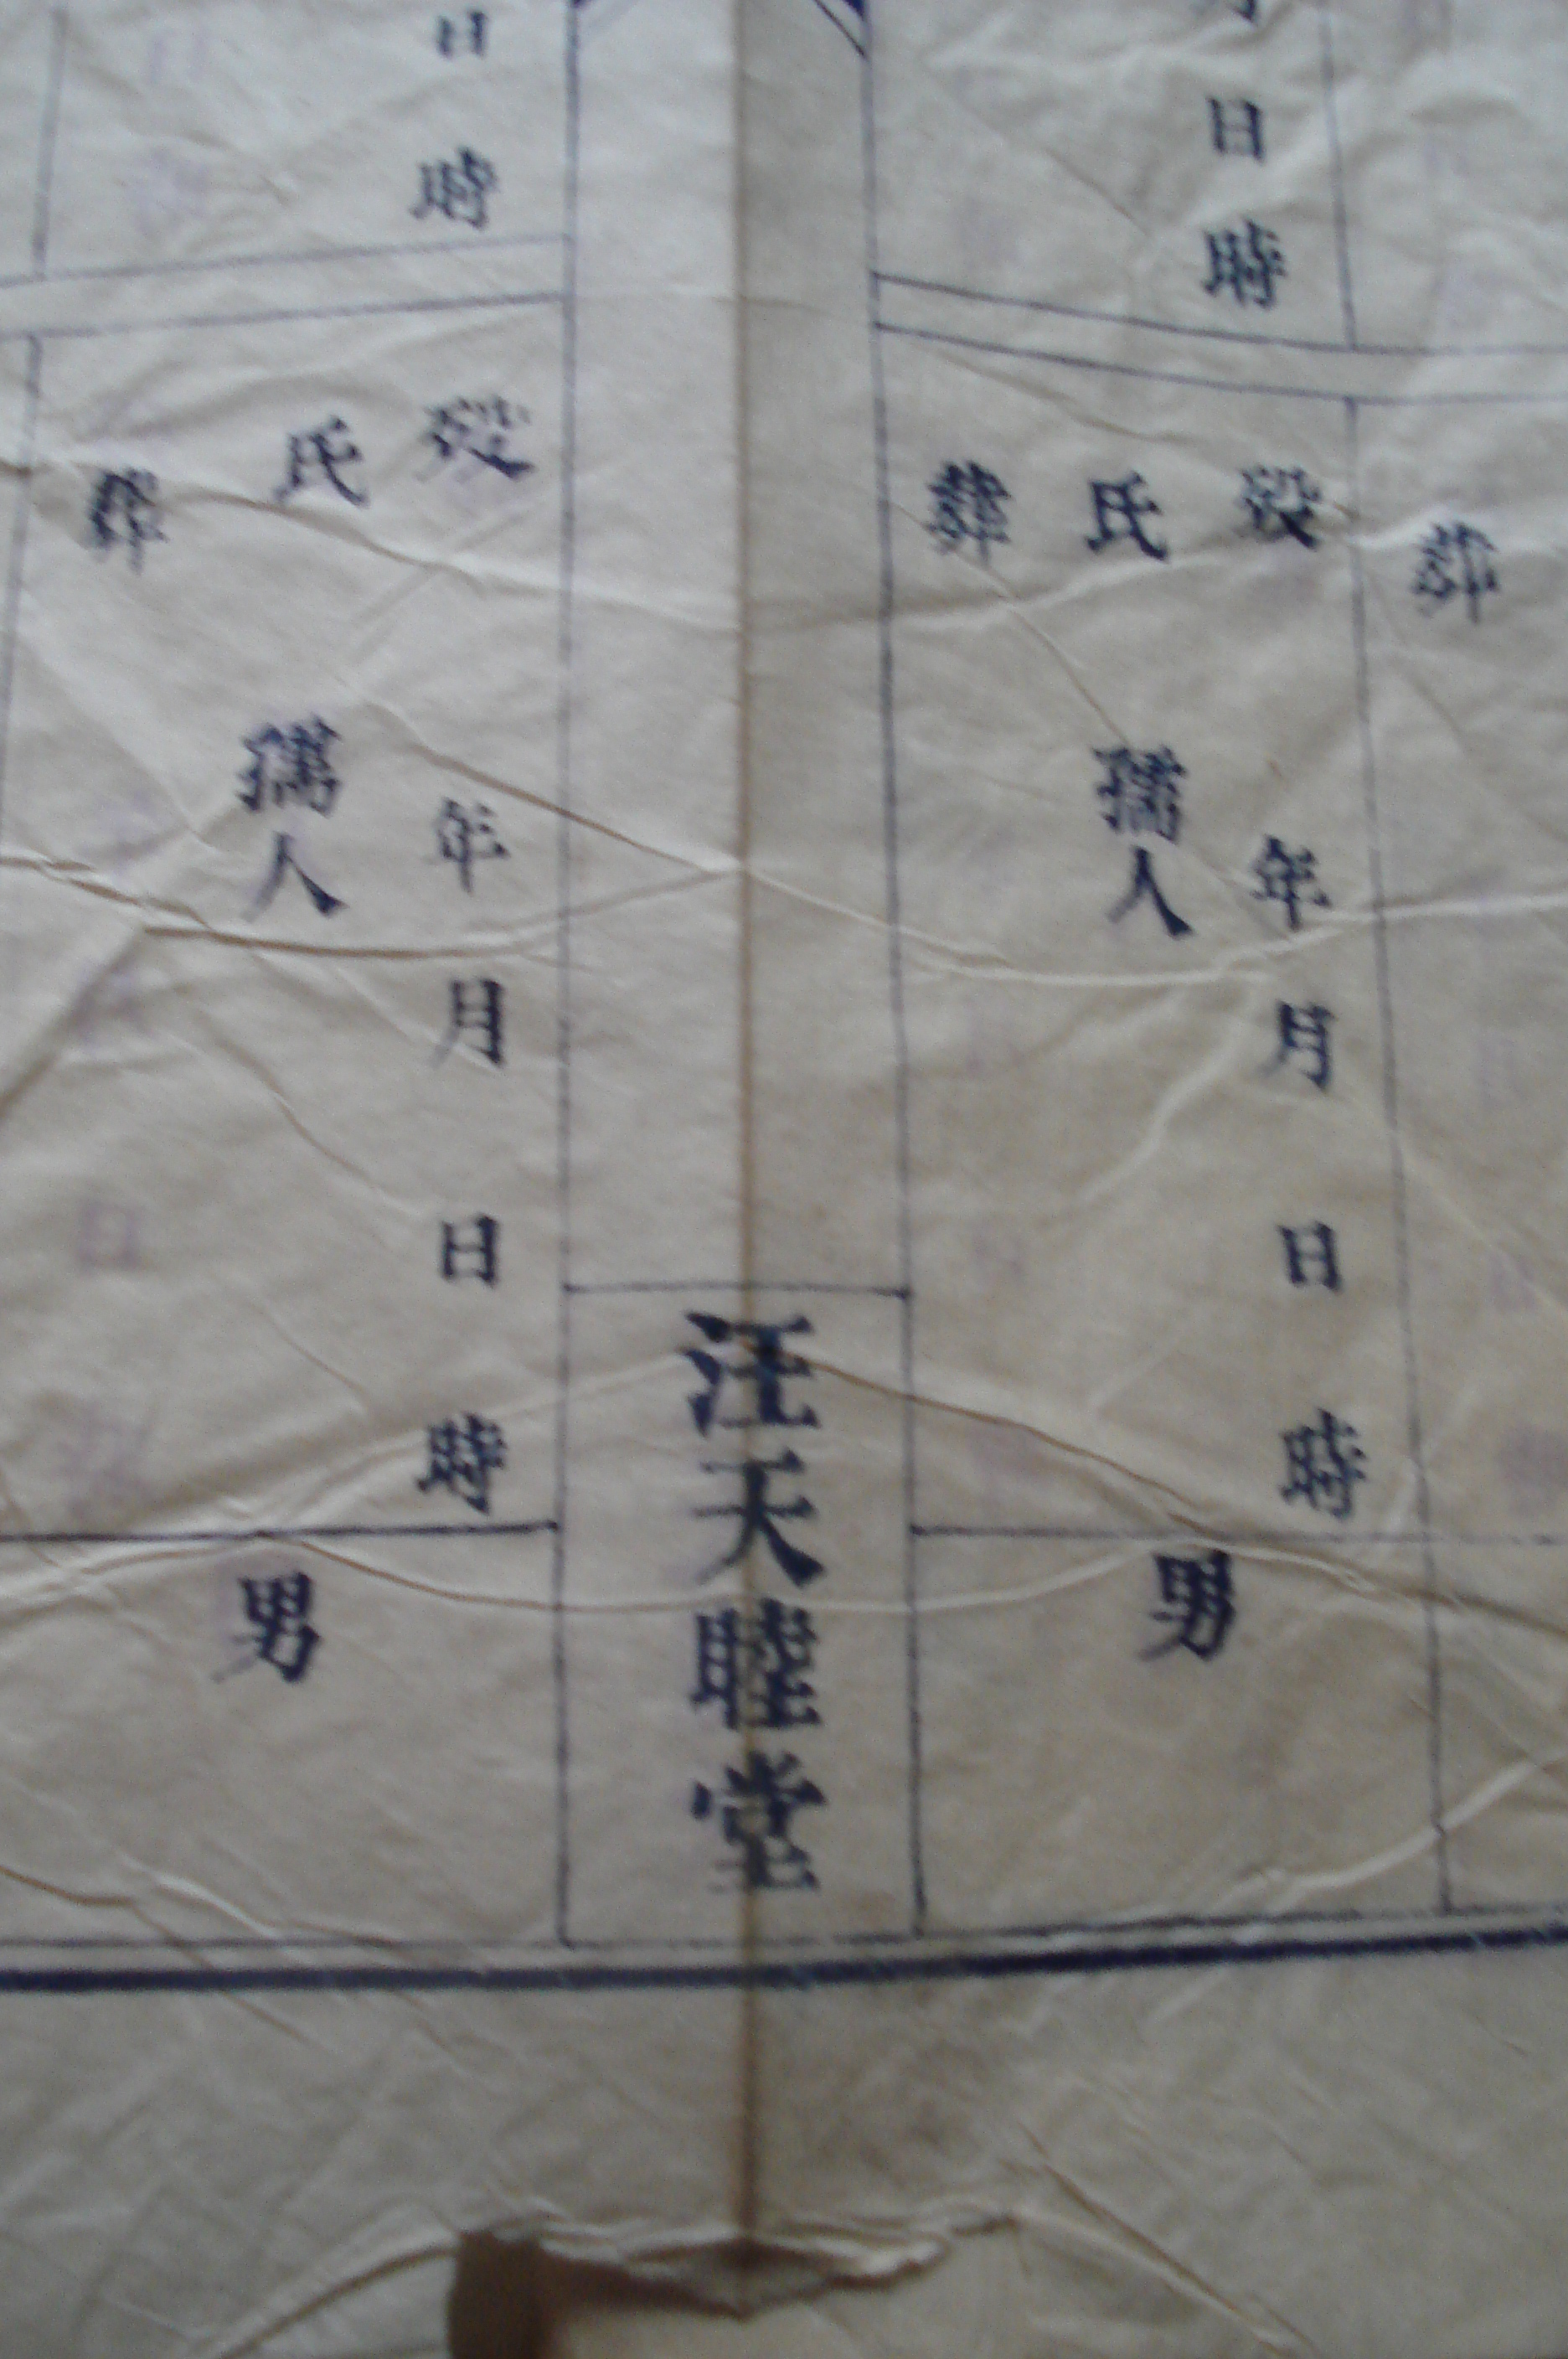 日時
葬
歿年月日時
氏孺人
葬
男
汪天睦堂
日時
歿年月日時
氏孺人
葬
男